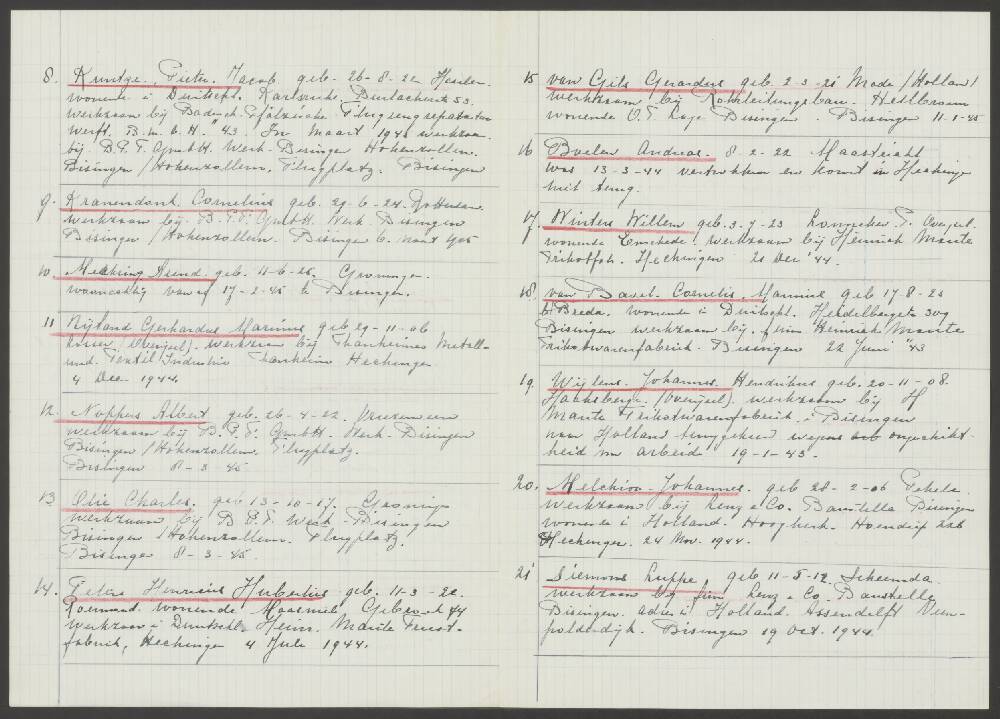 8. Kuntze. Pieter. Jacob. geb. 26-8-22
wonende i Duitschl. Karlsruhe. Durlacherstr 53.
werkzaam bij Badisch-Pfälzische Flugzeugreparatur
werft. B.m.b.H. "43. In Maart 1945 werkzaam
bij. B.P.F. GmbH. Werk-Bisingen Hohenzollern.
Bisingen / Hohenzollern. Flugplatz. Bisingen
9. Kranendonk. Cornelius geb. 29-6-24. Rotterdam.
werkzaam bij. B.P.F. GmbH. Werk Bisingen
Bisingen / Hohenzollern. Bisingen 6. Maart 1945
10. Mecking Arend. geb. 11-6-25, Groningen.
woonachtig vanaf 17-2-45 te Bisingen.
11 Nijland Gerhardus Marinus, geb 29-11-06
(Overijsel). werkzaam bij Thanheimer Metall-
und. Textil Industrie Thanheim Hechingen
4 Dec 1944.
12. Noppers Albert geb. 26-4-22.
werkzaam bij B.P.F. GmbH. Werk-Bisingen
Bisingen / Hohenzollern. Flugplatz.
Bisingen 8-3-45
13 Olie Charles, geb 13-10-17.
werkzaam bij B.P.F. Werk-Bisingen
Bisingen / Hohenzollern. Flugplatz.
Bisingen 8-3-45.
14. Peters Henricus Hubertus geb. 11-3-22
Roermond wonende Maasniel,
werkzaam i Duitschl. Heinr. Maute
fabrik, Hechingen 4 Juli 1944.
15 van Gils Gerardus geb. 2-3-21 Made / Holland
werkzaam bij Rohrleitungsbau. Heilbronn
wonende O.T. Lager Bisingen. Bisingen 11-1-45
16 Boelen Andreas. 8-2-22 Maastricht
was 13-3-44 vertrokken en komt in Hechingen
niet terug.
17. Winters Willem geb. 3-7-23 Overijsel.
wonende Enschede. werkzaam bij Heinrich Maute
Trikotfab. Hechingen 21 Dec '44.
18. van Bavel. Cornelis. Marinus geb 17-8-21
b/Breda. wonende i Duitschl. Heidelbergstr 309
Bisingen werkzaam bij. firm Heinrich Maute
Trikotwarenfabrik. Bisingen 22 Juni "43
19. Wijlens. Johannes. Hendrikus geb. 20-11-08.
Haaksbergen (Overijsel). werkzaam bij H
Maute Trikotwarenfabrik i Bisingen
naar Holland teruggekeerd wegens ongeschikt-
heid om arbeid 19-1-43.
20. Melchior Johannes. geb 28-2-06 Pekela.
werkzaam bij Lenz & Co. Baustelle Bisingen
wonende i Holland. Hoogkerk. Hoendiep
Hechingen. 24 Nov. 1944.
21 Siemons Luppe, geb 11-5-12 Scheemda.
werkzaam bij firm Lenz & Co. Baustelle
Bisingen. adres i Holland. Assendelft Veen-
polderdijk. Bisingen 19 Oct. 1944.